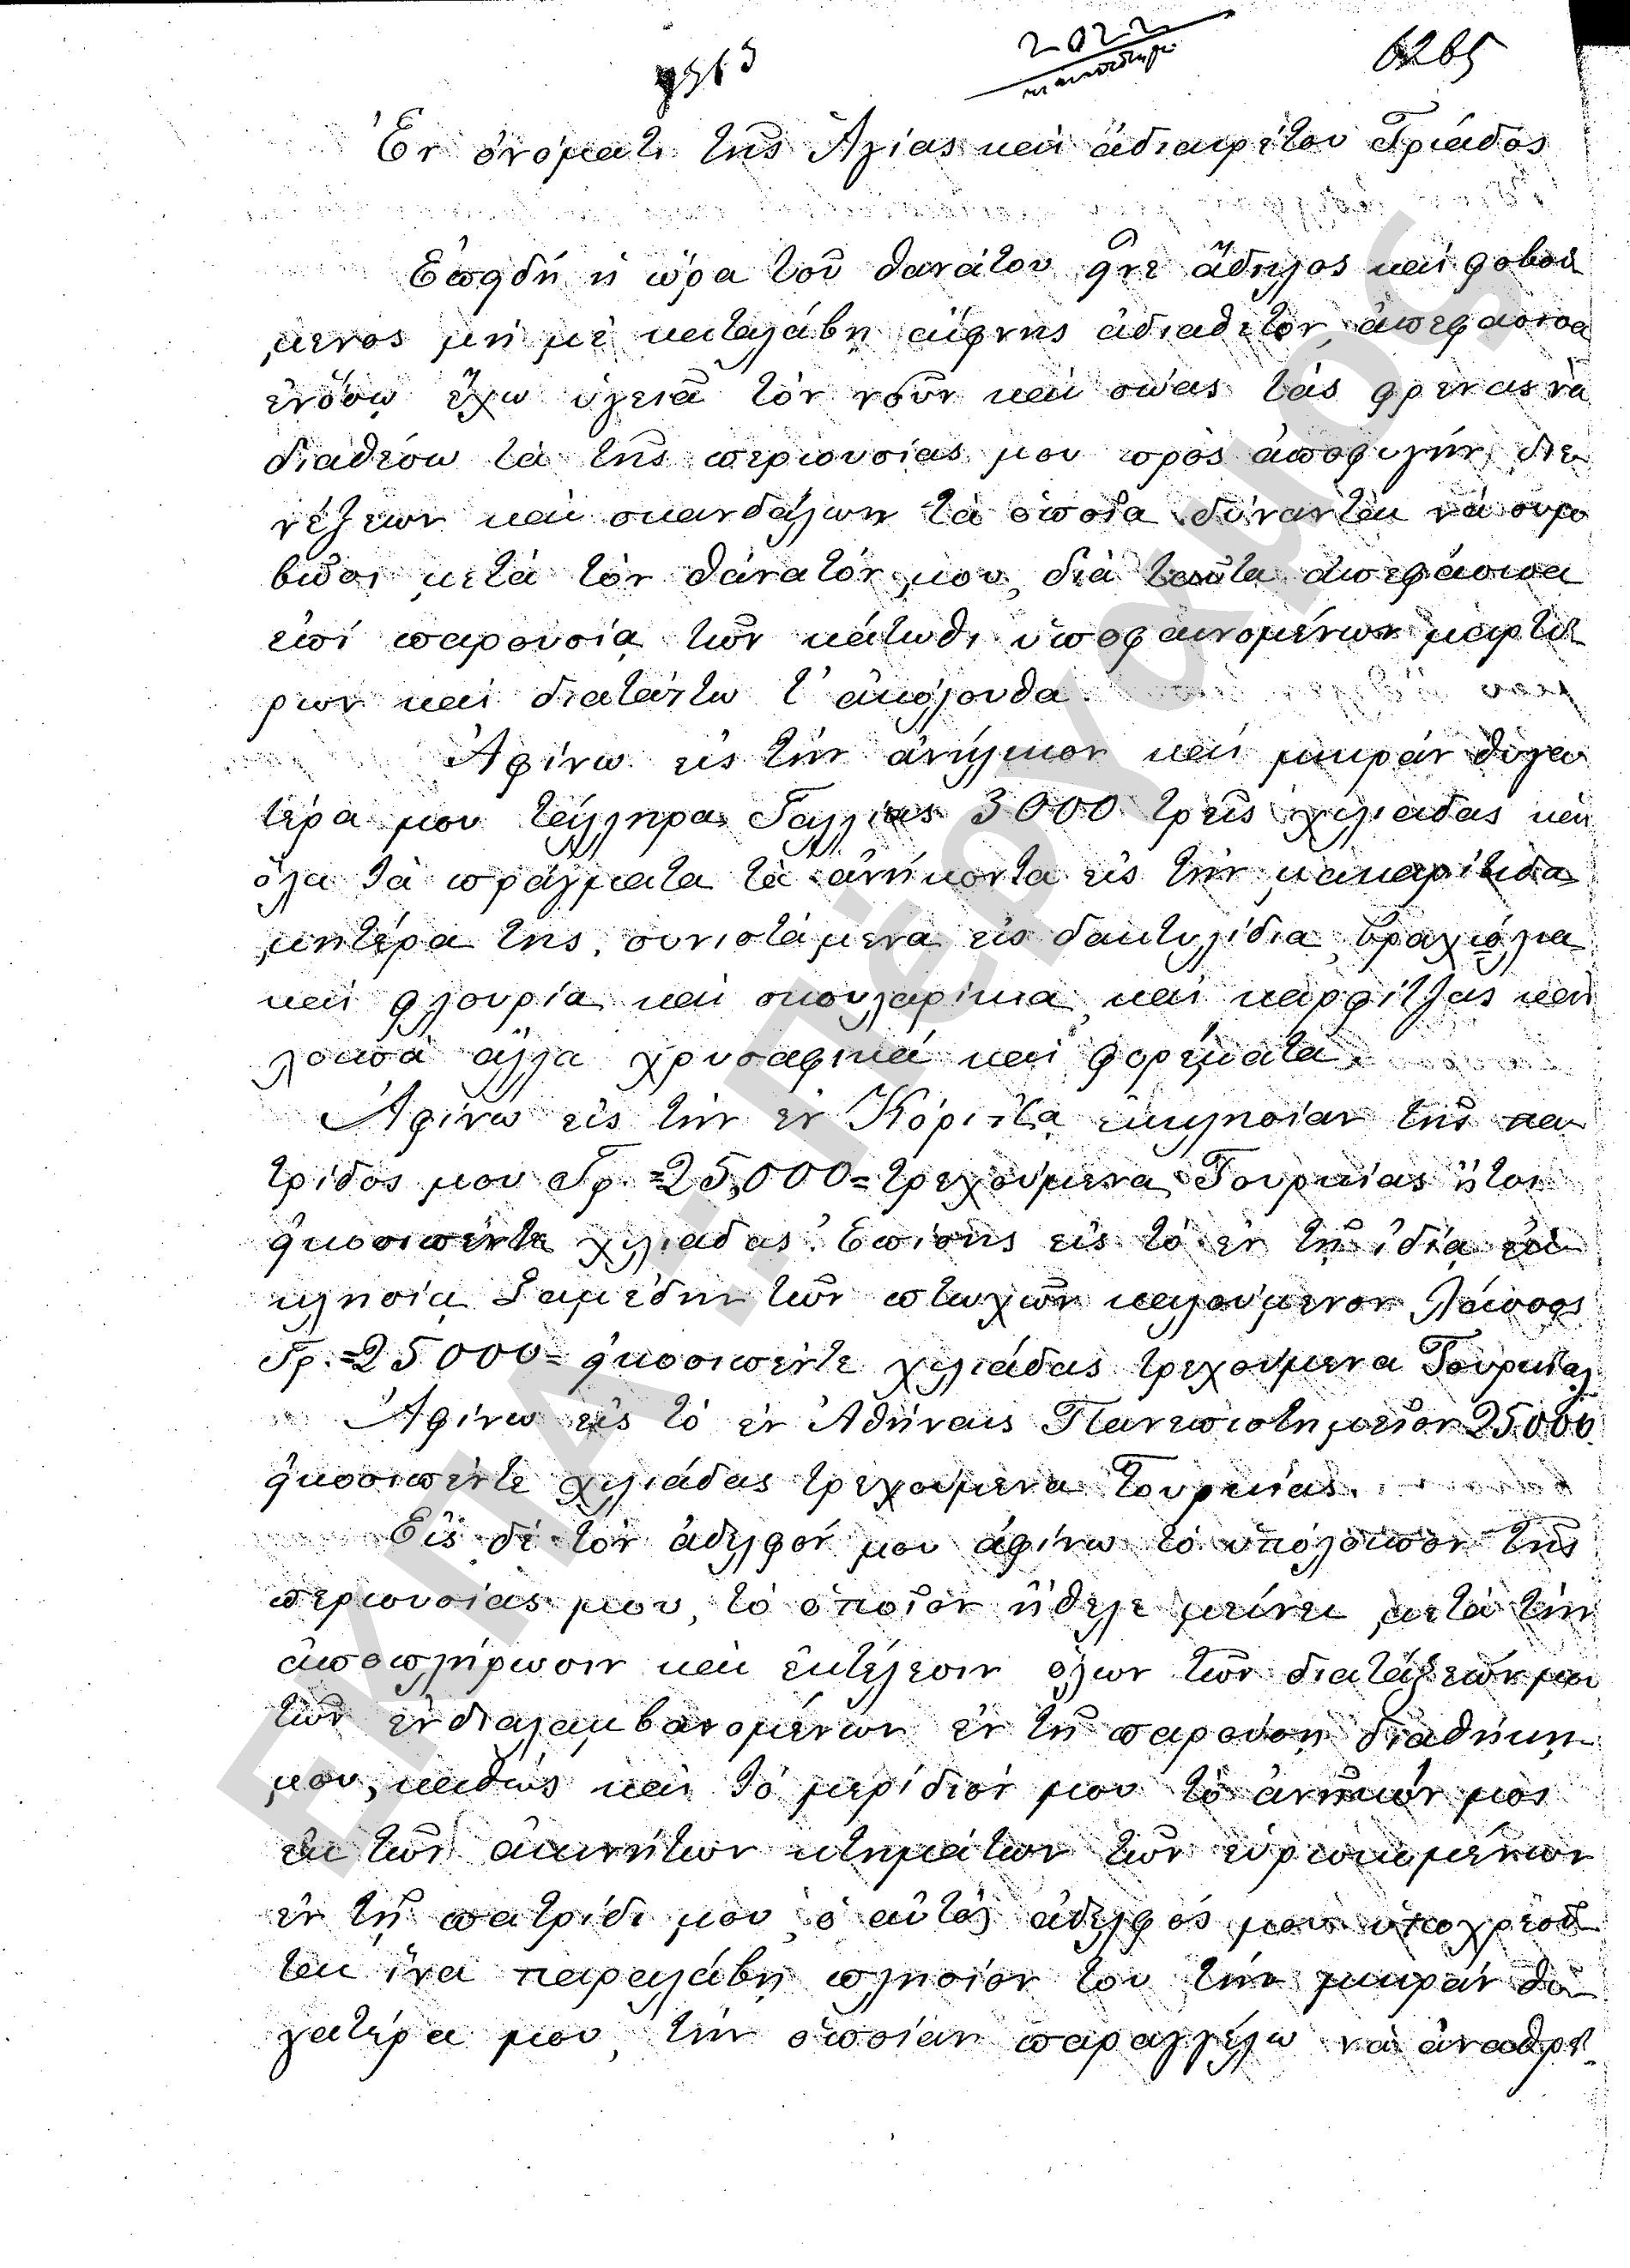 2022
6265
Ἐν ὀνόματι τῆς Ἁγίας καὶ ἀδιαιρέτου Τριάδος
Ἐπειδὴ ἡ ὥρα τοῦ θανάτου εἶνε ἄδηλος καὶ φοβού
μενος μὴ μὲ καταλάβῃ αἴφνης ἀδιάθετον, ἀπεφάσισα
ἐνόσῳ ἔχω ὑγειᾶ τὸν νοῦν καὶ σώας τὰς φρενας νὰ
διαθέσω τὰ τῆς περιουσίας μου πρὸς ἀποφυγὴν διε
νέξεων καὶ σκανδάλων τὰ ὁποῖα δύνανται νὰ συμ
βῶσι μετὰ τὸν θάνατόν μου, διὰ ταῦτα ἀπεφάσισα
ἐπὶ παρουσίᾳ τῶν κάτωθι ὑποφαινομένων μαρτύ
ρων καὶ διατάττω τ' ἀκόλουθα.
Ἀφίνω εἰς τὴν ἀνήλικον καὶ μικρὰν θυγα
τέρα μου τάλληρα Γαλλίας 3000 τρεῖς χιλιαδας καὶ
ὅλα τὰ πράγματα τὰ ἀνήκοντα εἰς τὴν μακαρίτιδα
μητέρα της, συνιστάμενα εἰς δακτυλίδια, βραχιόλια
καὶ φλουρία καὶ σκουλαρίκια, καὶ καρφίτζας καὶ
λοιπὰ ἄλλα χρυσαφικά καὶ φορέματα.
Ἀφίνω εἰς τὴν ἐν Κόριτζᾳ ἐκκλησίαν τῆς πα
τρίδος μου Γρ. =25,000= τρεχούμενα Τουρκίας ἤτοι
εἰκοσιπέντε χιλιαδας. Ἐπίσης εἰς τὸ ἐν τῇ ἰδίᾳ ἐκ
κλησίᾳ Σαμεδην τῶν πτωχῶν καλούμενον Λάσσος
Γρ. =25000= εἰκοσιπέντε χιλιάδας τρεχούμενα Τουρκίας.
Ἀφίνω εἰς τὸ ἐν Ἀθήναις Πανεπιστημεῖον 25000
εἰκοσιπέντε χιλιάδας τρεχούμενα Τουρκίας.
Εἰς δὲ τὸν ἀδελφόν μου ἀφίνω τὸ ὑπόλοιπον τῆς
περιουσίας μου, τὸ ὁποῖον ἤθελε μείνει μετὰ τὴν
ἀποπλήρωσιν καὶ ἐκτέλεσιν ὅλων τῶν διατάξεών μου
τῶν ἐνδιαλαμβανομένων ἐν τῇ παρούσῃ διαθήκῃ
μου, καθὼς καὶ τὸ μερίδιόν μου τὸ ἀνῆκόν μοι
ἐκ τῶν ἀκινήτων κτημάτων τῶν εὑρισκομένων
ἐν τῇ πατρίδι μου, ὁ αὐτὸς ἀδελφός μου ὑποχρεοῦ
ται ἵνα παραλάβῃ πλησίον του τὴν μικρὰν θυ
γατέρα μου, τὴν ὁποίαν παραγγέλω νὰ ἀναθρέ
ΕΚΠΑ :: Πέργαμος